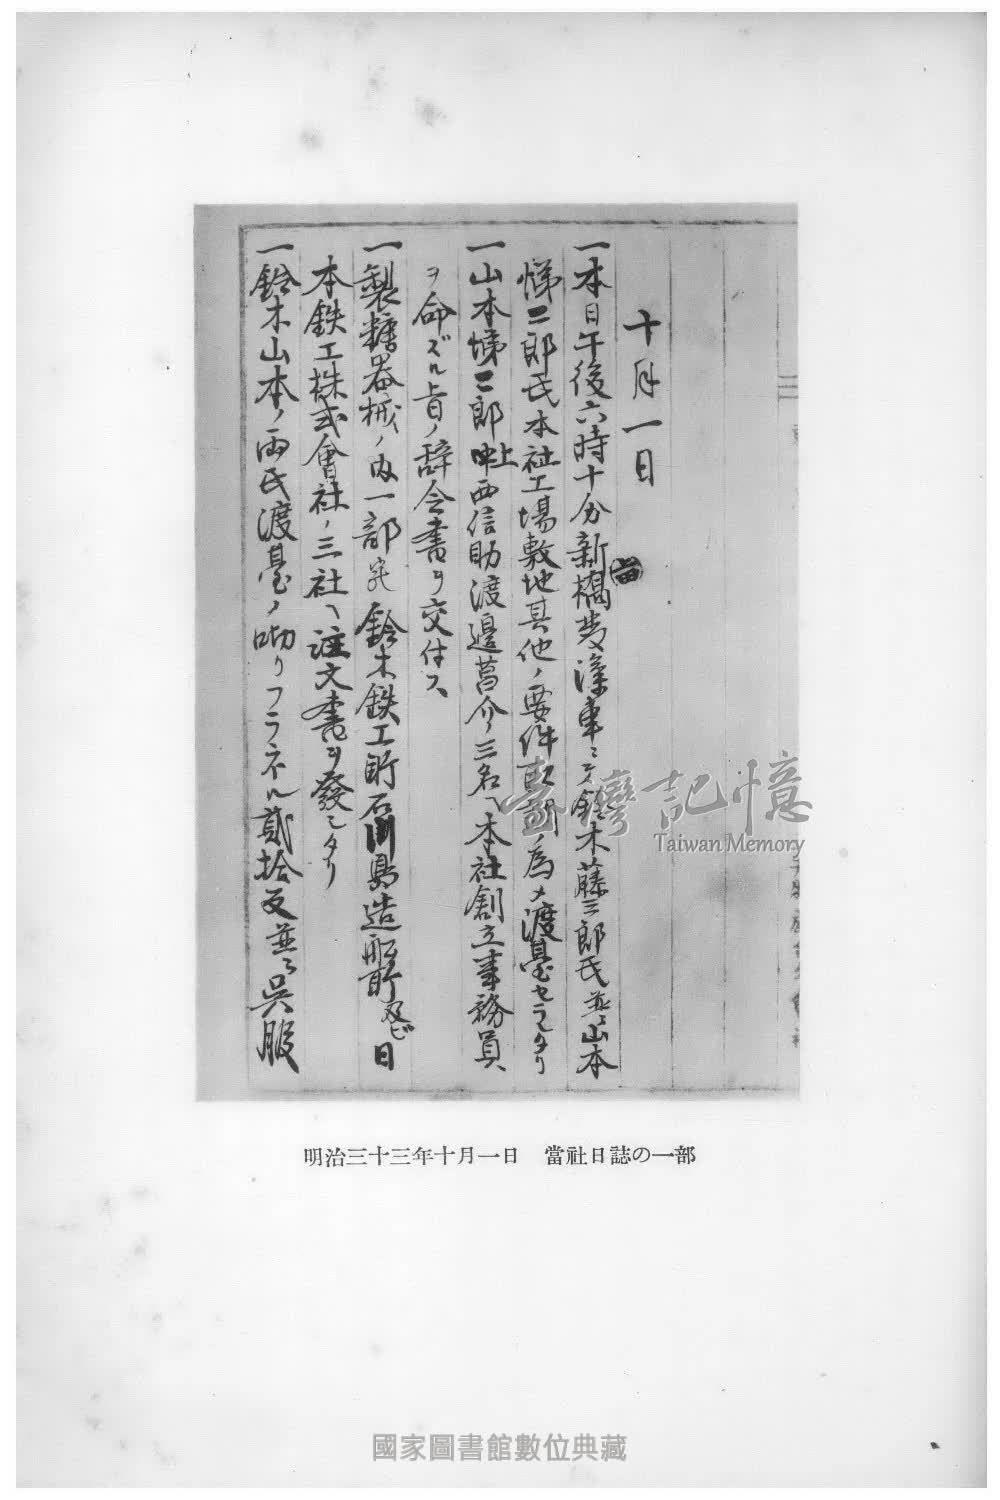 十月一日
一本日午後六時十分新橋発滊車ニテ鈴木藤三郎氏並ニ山本
悌二郎氏本社工場敷地其他ノ要件ノ為メ渡臺セラレタリ
一山本悌二郎中上西信助渡邉菖介ノ三名ヘ本社創立事務員
ヲ命ズル旨ノ辞令書ヲ交付ス
一製糖器械ノ内一部宛鈴木鉄工所石川島造船所及ビ日
本鉄工株式會社ノ三社ヘ注文書ヲ發シタリ
一鈴木山本ノ両氏渡臺ノ砌リフラネル貳拾反並ニ呉服
臺灣記憶
Taiwan Memory
明治三十三年十月一日 當社日誌の一部
國家圖書館數位典藏